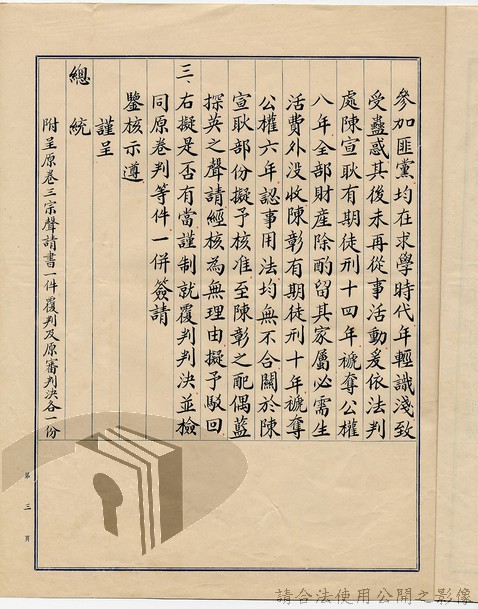 參加匪黨均在求學時代年輕識淺致
受蠱惑其後未再從事活動爰依法判
處陳宣耿有期徒刑十四年褫奪公權
八年全部財產除酌留其家屬必需生
活費外沒收陳彰有期徒刑十年褫奪
公權六年認事用法均無不合關於陳
宣耿部份擬予核准至陳彰之配偶藍
探英之聲請經核為無理由擬予駁回
三、右擬是否有當謹制就覆判判決並檢
同原卷判等件一併簽請
鑒核示遵
謹呈
總統
附呈原卷三宗聲請書一件覆判及原審判決各一份
第三頁
請合法使用公開之影像